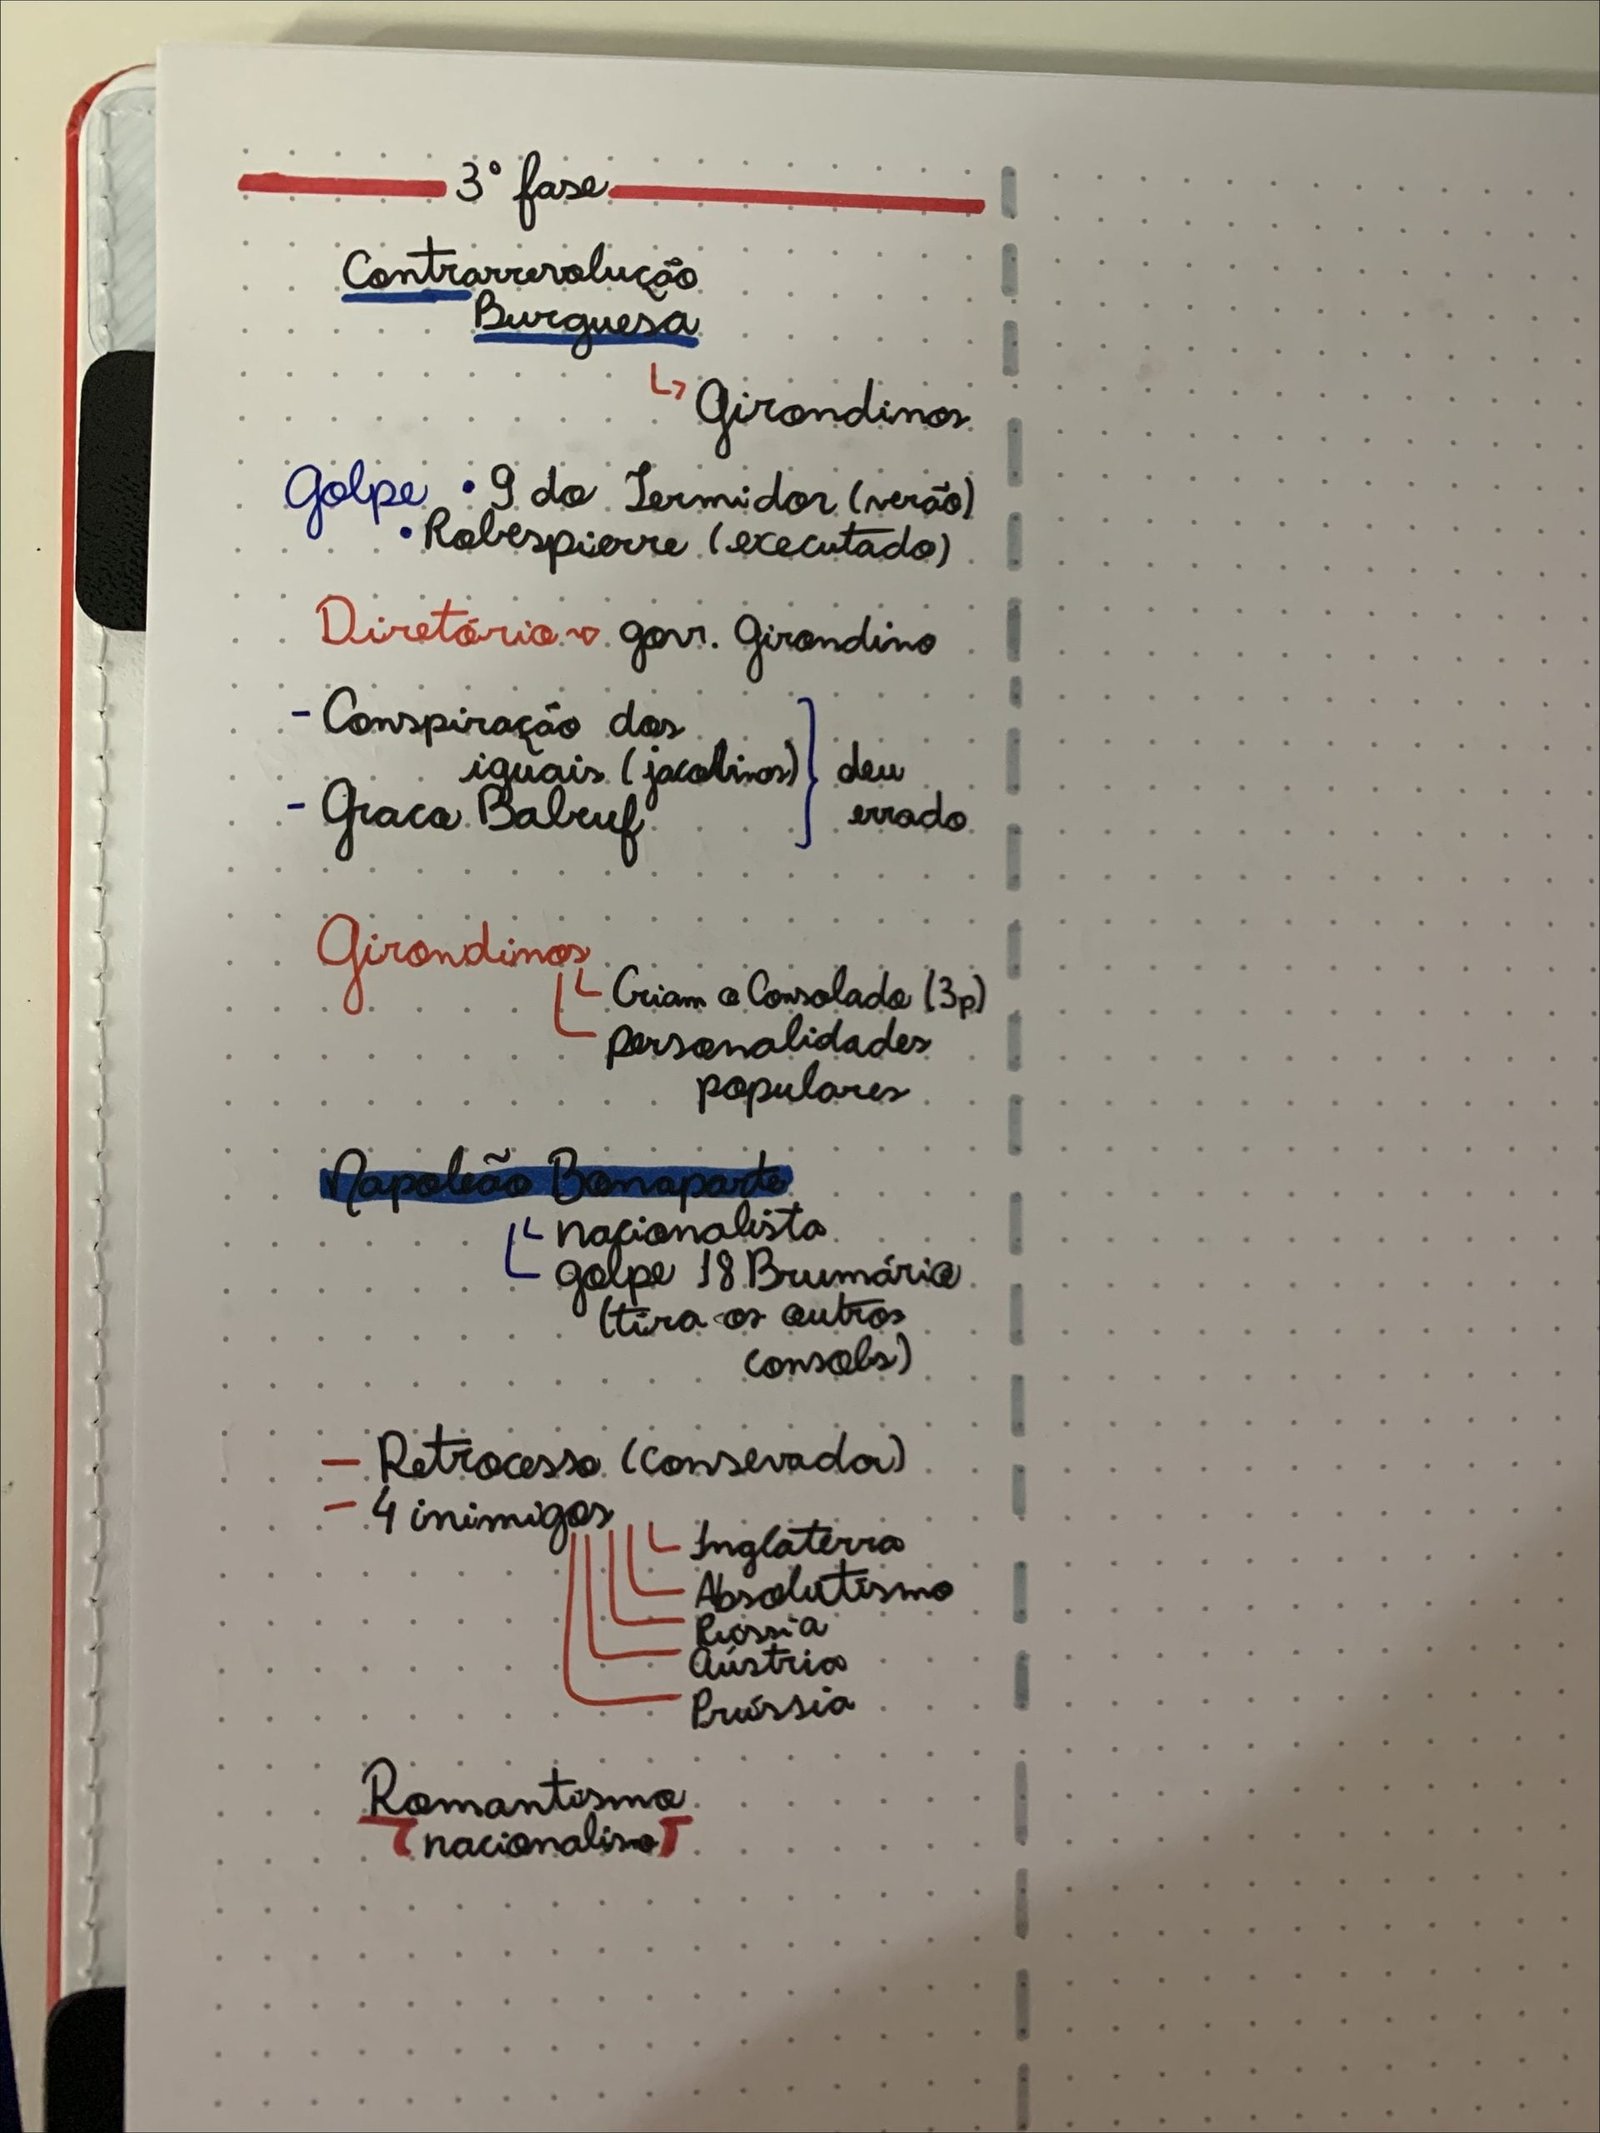 3° fase
Contrarrevolução
Burguesa
Girondinos
Golpe • 9 do Termidor (verão)
• Robespierre (executado)
Diretório → gov. Girondino
- Conspiração dos
iguais (jacobinos) } deu
- Graco Babeuf errado
Girondinos
Criam o Consolado (3p)
personalidades
populares
Napoleão Bonaparte
nacionalista
golpe 18 Brumário
(tira os outros
consols)
- Retrocesso (consevador)
- 4 inimigos
Inglaterra
Absolutismo
Rússia
Aústria
Prússia
Romantismo
nacionalismo